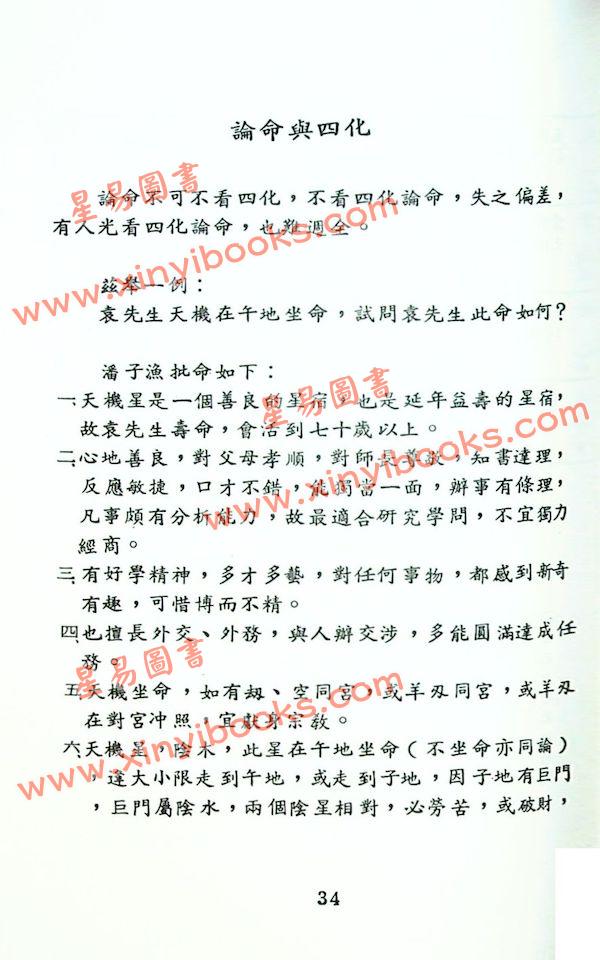 論命與四化
論命不可不看四化，不看四化論命，失之偏差，
有人光看四化論命，也難週全。
茲舉一例：
袁先生天機在午地坐命，試問袁先生此命如何？
潘子漁批命如下：
一、天機星是一個善良的星宿，也是延年益壽的星宿，
故袁先生壽命，會活到七十歲以上。
二、心地善良，對父母孝順，對師長尊敬，知書達理，
反應敏捷，口才不錯，能獨當一面，辦事有條理，
凡事頗有分析能力，故最適合研究學問，不宜獨力
經商。
三、有好學精神，多才多藝，對任何事物，都感到新奇
有趣，可惜博而不精。
四、也擅長外交、外務，與人辦交涉，多能圓滿達成任
務。
五、天機坐命，如有刼、空同宮，或羊刄同宮，或羊刄
在對宮冲照，宜獻身宗教。
六、天機星，陰木，此星在午地坐命（不坐命亦同論）
，逢大小限走到午地，或走到子地，因子地有巨門
，巨門屬陰水，兩個陰星相對，必勞苦，或破財，
34
星易圖書
www.xinyibooks.com
星易圖書
www.xinyibooks.com
星易圖書
www.xinyibooks.com